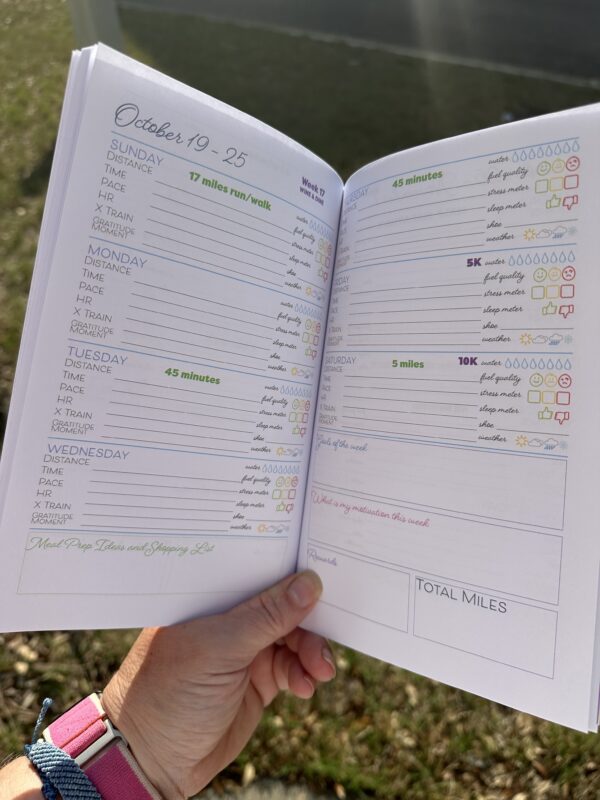 October 19 - 25
SUNDAY
DISTANCE
TIME
PACE
HR
X TRAIN
GRATITUDE
MOMENT
17 miles run/walk
Week 17
WINE & DINE
water
fuel quality
stress meter
sleep meter
shoe
weather
MONDAY
DISTANCE
TIME
PACE
HR
X TRAIN
GRATITUDE
MOMENT
water
fuel quality
stress meter
sleep meter
shoe
weather
TUESDAY
DISTANCE
TIME
PACE
HR
X TRAIN
GRATITUDE
MOMENT
45 minutes
water
fuel quality
stress meter
sleep meter
shoe
weather
WEDNESDAY
DISTANCE
TIME
PACE
HR
X TRAIN
GRATITUDE
MOMENT
water
fuel quality
stress meter
sleep meter
shoe
weather
Meal Prep Ideas and Shopping List
45 minutes
water
fuel quality
stress meter
sleep meter
shoe
weather
5K
water
fuel quality
stress meter
sleep meter
shoe
weather
X TRAIN
GRATITUDE
MOMENT
SATURDAY
DISTANCE
TIME
PACE
HR
X TRAIN
GRATITUDE
MOMENT
5 miles
10K
water
fuel quality
stress meter
sleep meter
shoe
weather
Goals of the week
What is my motivation this week
Rewards
TOTAL MILES